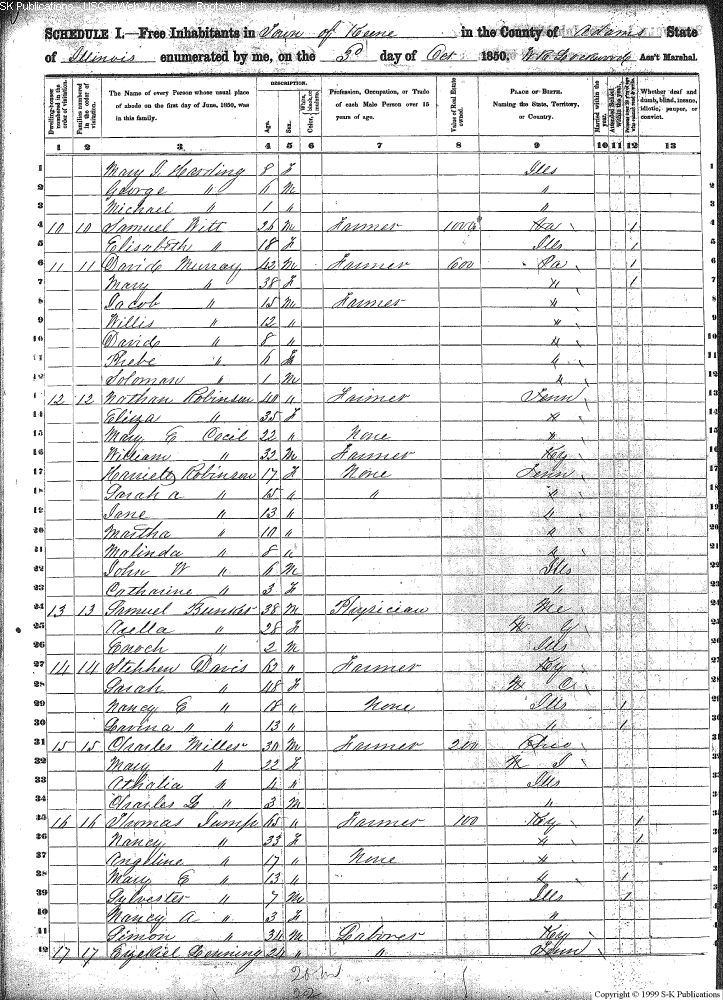 SK Publications - USGenWeb Archives - Rootsweb
SCHEDULE I.—Free Inhabitants in Town of Keene in the County of Adams State
of Illinois enumerated by me, on the 3d day of Oct 1850. Ass't Marshal.
DESCRIPTION.
Dwelling-houses numbered in the order of visitation.
Families numbered in the order of visitation.
The Name of every Person whose usual place of abode on the first day of June, 1850, was in this family.
Age.
Sex.
Color, White, black, or mulatto.
Profession, Occupation, or Trade of each Male Person over 15 years of age.
Value of Real Estate owned.
PLACE OF BIRTH. Naming the State, Territory, or Country.
Married within the year.
Attended School within the year.
Persons over 20 y'rs of age who cannot read & write.
Whether deaf and dumb, blind, insane, idiotic, pauper, or convict.
1 2 3 4 5 6 7 8 9 10 11 12 13
1 Mary J. Harding 8 F Ills 1
2 George " 6 M " 2
3 Michael " 1 " " 3
4 10 10 Samuel Witt 26 M Farmer 1000 1 4
5 Elisabeth " 18 F Ills 1 5
6 11 11 David Murray 42 M Farmer 600 Pa 1 6
7 Mary " 38 F " 1 7
8 Jacob " 15 M Farmer " 8
9 Willis " 12 " " 9
10 David " 8 " " 10
11 Phebe " 6 F " 11
12 Soloman " 1 M " 12
13 12 12 Nathan Robinson 40 " Farmer Tenn 13
14 Eliza " 35 F " 14
15 Mary E Cecil 22 " None " 15
16 William " 32 M Farmer Ky 16
17 Harriett Robinson 17 F None Tenn 17
18 Sarah A " 15 " " " 18
19 Jane " 13 " " 19
20 Martha " 10 " " 20
21 Malinda " 8 " " 21
22 John W " 6 M Ills 22
23 Catharine " 3 F " 23
24 13 13 Samuel Bunker 38 M Physician Me 24
25 " 28 F N Y 25
26 Enoch " 2 M Ills 26
27 14 14 Stephen Davis 63 " Farmer Ky 27
28 Sarah " 48 F N Ca 28
29 Nancy E " 18 " None Ills 1 29
30 Lavina " " 13 " " 1 30
31 15 15 Charles Miller 30 M Farmer 200 Ohio 31
32 Mary " 22 F N J 32
33 Athalia " 4 " Ills 33
34 Charles L " 3 M " 34
35 16 16 Thomas Jump 65 " Farmer 100 Ky 1 35
36 Nancy " 33 F " 1 36
37 Angeline " 17 " None " 37
38 Mary E " 13 " " 1 38
39 Sylvester " 7 M Ills 1 39
40 Nancy A " 3 F " 40
41 Simon " 34 M Laborer Ky 41
42 17 17 Ezekiel Denning 24 " " Tenn 42
Copyright © 1999 S-K Publications